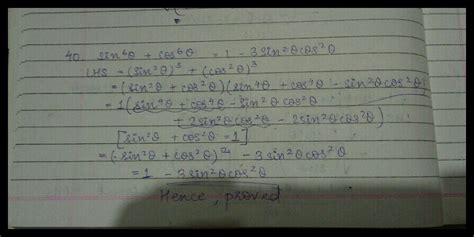 40. sin⁶θ + cos⁶θ = 1 - 3sin²θcos²θ
LHS = (sin²θ)³ + (cos²θ)³
= (sin²θ + cos²θ)(sin⁴θ + cos⁴θ - sin²θcos²θ)
= 1(sin⁴θ + cos⁴θ - sin²θcos²θ
+ 2sin²θcos²θ - 2sin²θcos²θ)
[sin²θ + cos²θ = 1]
= (sin²θ + cos²θ)² - 3sin²θcos²θ
= 1 - 3sin²θcos²θ
Hence, proved